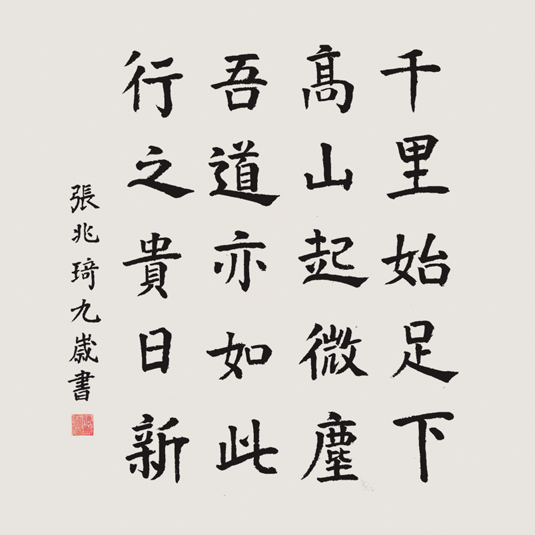 千里始足下
髙山起微塵
吾道亦如此
行之貴日新
張兆琦九歲書